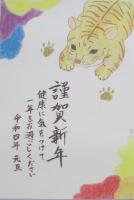 謹賀新年
健康に気をつけて
一年をお過ごしください
令和四年 元旦